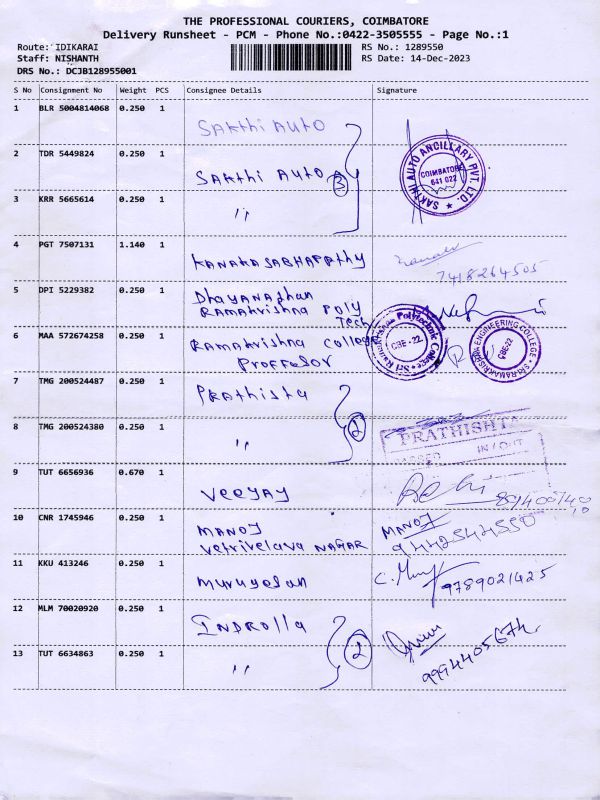 THE PROFESSIONAL COURIERS, COIMBATORE
Delivery Runsheet - PCM - Phone No.:0422-3505555 - Page No.:1
Route: IDIKARAI
RS No.: 1289550
Staff: NISHANTH
RS Date: 14-Dec-2023
DRS No.: DCJB128955001
S No Consignment No Weight PCS Consignee Details Signature
1 BLR 5004814068 0.250 1 Sakthi Auto
2 TDR 5449824 0.250 1 Sakthi Auto 3
SAKTHI AUTO ANCILLARY PVT. LTD.
COIMBATORE
641 022
3 KRR 5665614 0.250 1 "
4 PGT 7507131 1.140 1 KANAKASABHAPATHY
7418264505
5 DPI 5229382 0.250 1 Dhayanathan
Ramakrishna Poly
Tech
6 MAA 572674258 0.250 1 Ramakrishna College
Proffesor
Sri Ramakrishna Polytechnic College
CBE-22
SRI RAMAKRISHNA ENGINEERING COLLEGE
CBE-22
7 TMG 200524487 0.250 1 Prathista
8 TMG 200524380 0.250 1 " 2
PRATHISHTA
IN / OUT
9 TUT 6656936 0.670 1 Veeyay
10 CNR 1745946 0.250 1 MANOJ
Vetrivelava NAGAR
MANOJ
9442544550
11 KKU 413246 0.250 1 Murugesan
9789021425
12 MLM 70020920 0.250 1 INDRolla
13 TUT 6634863 0.250 1 " 2
9994405674